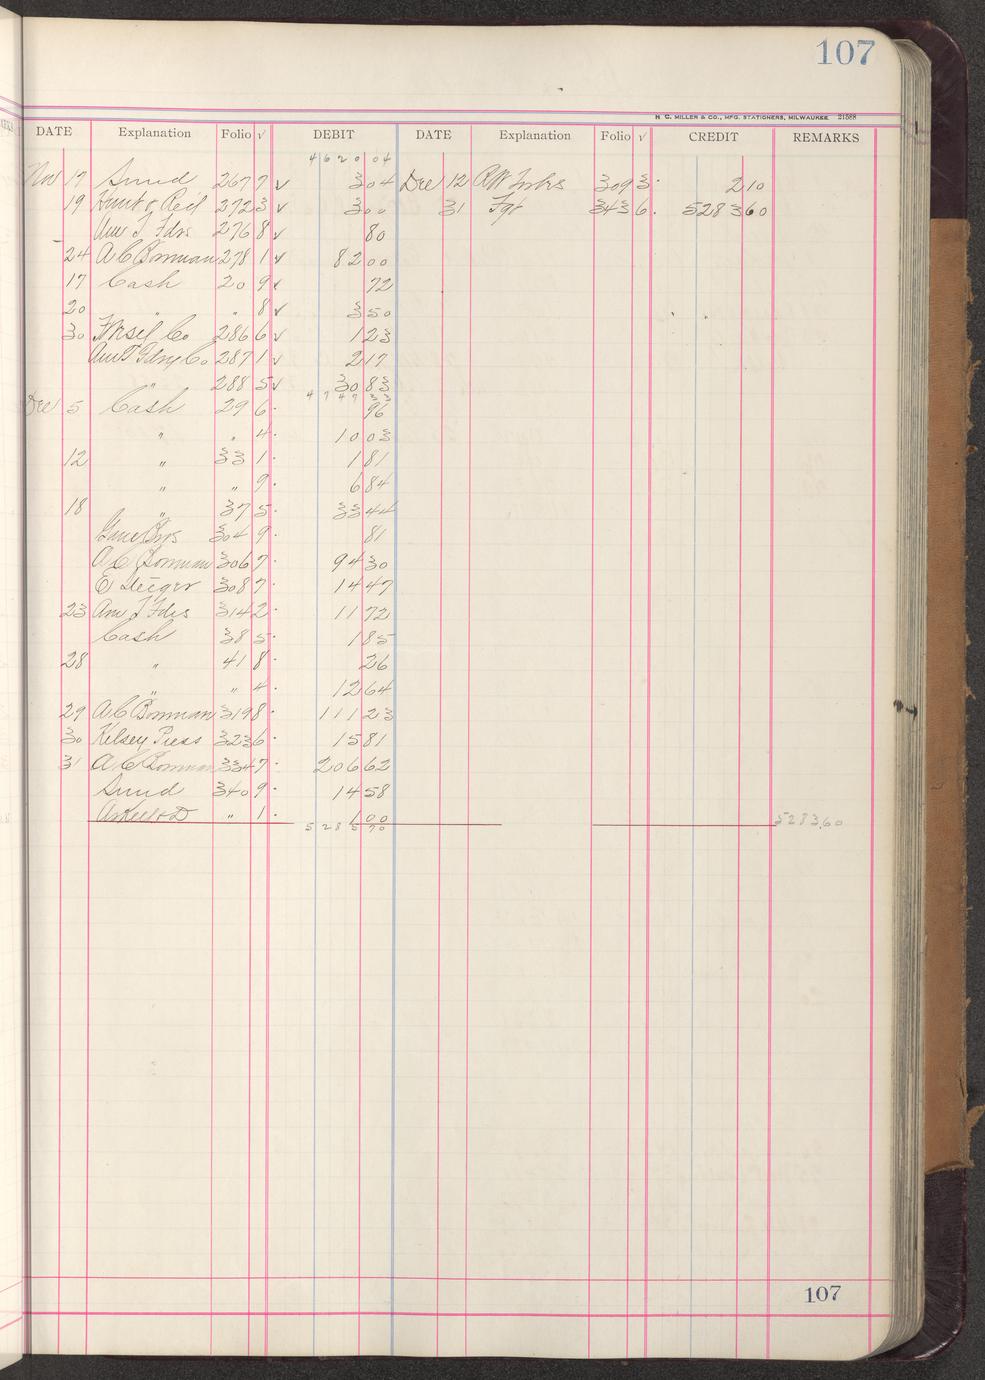 107
H. C. MILLER & CO., MFG. STATIONERS, MILWAUKEE 21588
DATE Explanation Folio √ DEBIT DATE Explanation Folio √ CREDIT REMARKS
4620 04
Nov 17 Sund 267 7 √ 3 04 Dec 12 309 3 2 10
19 Hunt & 272 3 √ 3 00 31 Fgt 343 6 5283 60
Am T Fdrs 276 8 √ 80
24 A C Bornman 278 1 √ 82 00
17 Cash 20 9 √ 72
20 " " 8 √ 3 50
30 Co 286 6 √ 1 23
Am T Fdry Co 287 1 √ 2 17
" 288 5 √ 30 83
4747 33
Dec 5 Cash 29 6 96
" " 4 10 03
12 " 33 1 1 81
" " 9 6 84
18 " 37 5 33 44
Bros 304 9 81
A C Bornman 306 7 94 30
E Steiger 308 7 14 47
23 Am T Fdrs 314 2 11 72
Cash 38 5 1 85
28 " 41 8 26
" " 4 12 64
29 A C Bornman 319 8 111 23
30 Kelsey Press 323 6 15 81
31 A C Bornman 334 7 206 62
Sund 340 9 14 58
" 1 1 00
5285 70 5283.60
107